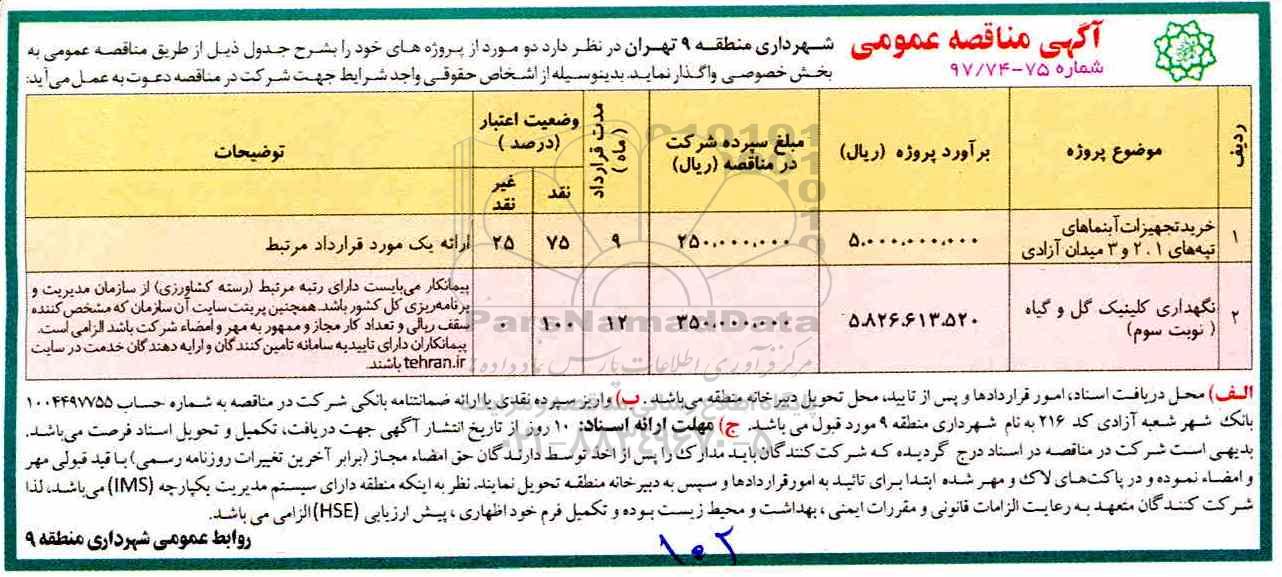 آگهی مناقصه عمومی
شماره ۷۵-۹۷/۷۴
شهرداری منطقه ۹ تهران در نظر دارد دو مورد از پروژه های خود را بشرح جدول ذیل از طریق مناقصه عمومی به
بخش خصوصی واگذار نماید. بدینوسیله از اشخاص حقوقی واجد شرایط جهت شرکت در مناقصه دعوت به عمل می‌آید:
ردیف
موضوع پروژه
برآورد پروژه (ریال)
مبلغ سپرده شرکت
در مناقصه (ریال)
مدت قرارداد
(ماه)
وضعیت اعتبار
(درصد)
نقد
غیر
نقد
توضیحات
۱
خرید تجهیزات آبنماهای
تپه‌های ۱، ۲ و ۳ میدان آزادی
۵،۰۰۰،۰۰۰،۰۰۰
۲۵۰،۰۰۰،۰۰۰
۹
۷۵
۲۵
ارائه یک مورد قرارداد مرتبط
۲
نگهداری کلینیک گل و گیاه
( نوبت سوم)
۵،۸۲۶،۶۱۳،۵۲۰
۳۵۰،۰۰۰،۰۰۰
۱۲
۱۰۰
۰
پیمانکار می‌بایست دارای رتبه مرتبط (رسته کشاورزی) از سازمان مدیریت و
برنامه‌ریزی کل کشور باشد. همچنین پرینت سایت آن سازمان که مشخص کننده
سقف ریالی و تعداد کار مجاز و ممهور به مهر و امضاء شرکت باشد الزامی است.
پیمانکاران دارای تاییدیه سامانه تامین کنندگان و ارایه دهندگان خدمت در سایت
tehran.ir باشند.
الف) محل دریافت اسناد، امور قراردادها و پس از تایید، محل تحویل دبیرخانه منطقه می‌باشد. ب) واریز سپرده نقدی یا ارائه ضمانتنامه بانکی شرکت در مناقصه به شماره حساب ۱۰۰۴۴۹۷۷۵۵
بانک شهر شعبه آزادی کد ۲۱۶ به نام شهرداری منطقه ۹ مورد قبول می باشد. ج) مهلت ارائه اسناد: ۱۰ روز از تاریخ انتشار آگهی جهت دریافت، تکمیل و تحویل اسناد فرصت می‌باشد.
بدیهی است شرکت در مناقصه در اسناد درج گردیده که شرکت کنندگان باید مدارک را پس از اخذ توسط دارندگان حق امضاء مجاز (برابر آخرین تغییرات روزنامه رسمی) با قید قبولی مهر
و امضاء نموده و در پاکت‌های لاک و مهر شده ابتدا برای تائید به امور قراردادها و سپس به دبیرخانه منطقه تحویل نمایند. نظر به اینکه منطقه دارای سیستم مدیریت یکپارچه (IMS) می‌باشد، لذا
شرکت کنندگان متعهد به رعایت الزامات قانونی و مقررات ایمنی، بهداشت و محیط زیست بوده و تکمیل فرم خود اظهاری، پیش ارزیابی (HSE) الزامی می باشد.
روابط عمومی شهرداری منطقه ۹
۱۰۲
ParsNamadData
مرکز فرآوری اطلاعات پارس نماد داده
۰۲۱-۸۸۳۴۹۶۷۰-۵